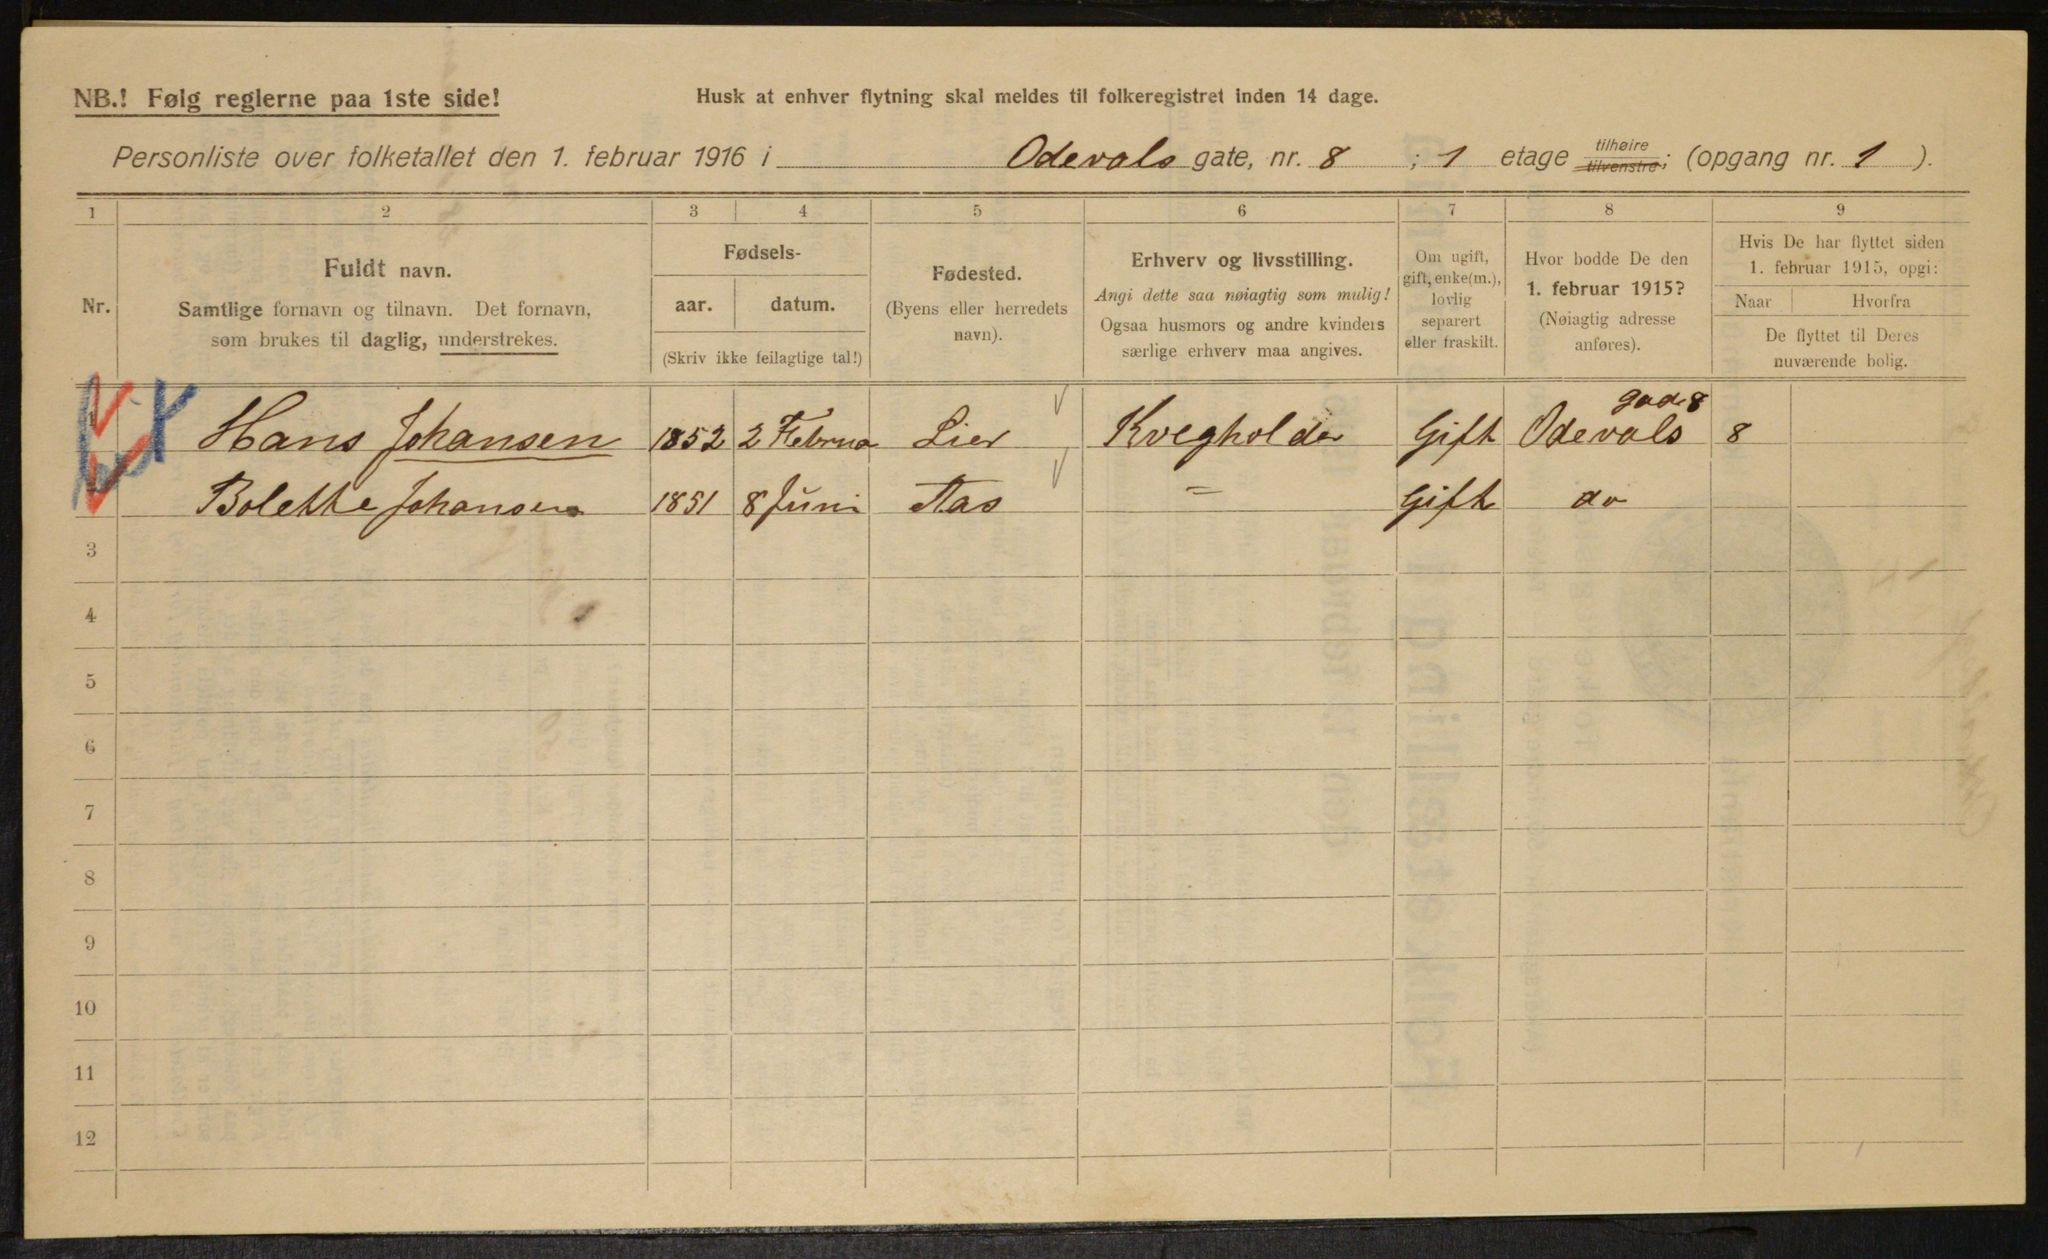 NB.! Følg reglerne paa 1ste side!
Husk at enhver flytning skal meldes til folkeregistret inden 14 dage.
Personliste over folketallet den 1. februar 1916 i Odevals gate, nr. 8 ; 1 etage tilhøire tilvenstre; (opgang nr. 1 ).
1 2 3 4 5 6 7 8 9
Nr.
Fuldt navn.
Samtlige fornavn og tilnavn. Det fornavn,
som brukes til daglig, understrekes.
Fødsels-
aar. datum.
(Skriv ikke feilagtige tal!)
Fødested.
(Byens eller herredets
navn).
Erhverv og livsstilling.
Angi dette saa nøiagtig som mulig!
Ogsaa husmors og andre kvinders
særlige erhverv maa angives.
Om ugift,
gift, enke(m.),
lovlig
separert
eller fraskilt.
Hvor bodde De den
1. februar 1915?
(Nøiagtig adresse
anføres).
Hvis De har flyttet siden
1. februar 1915, opgi:
Naar Hvorfra
De flyttet til Deres
nuværende bolig.
gade 8
Hans Johansen 1852 2 Februa Lier Kvegholder Gift Odevals 8
Bolette Johansen 1851 8 Juni Aas = Gift do
3
4
5
6
7
8
9
10
11
12